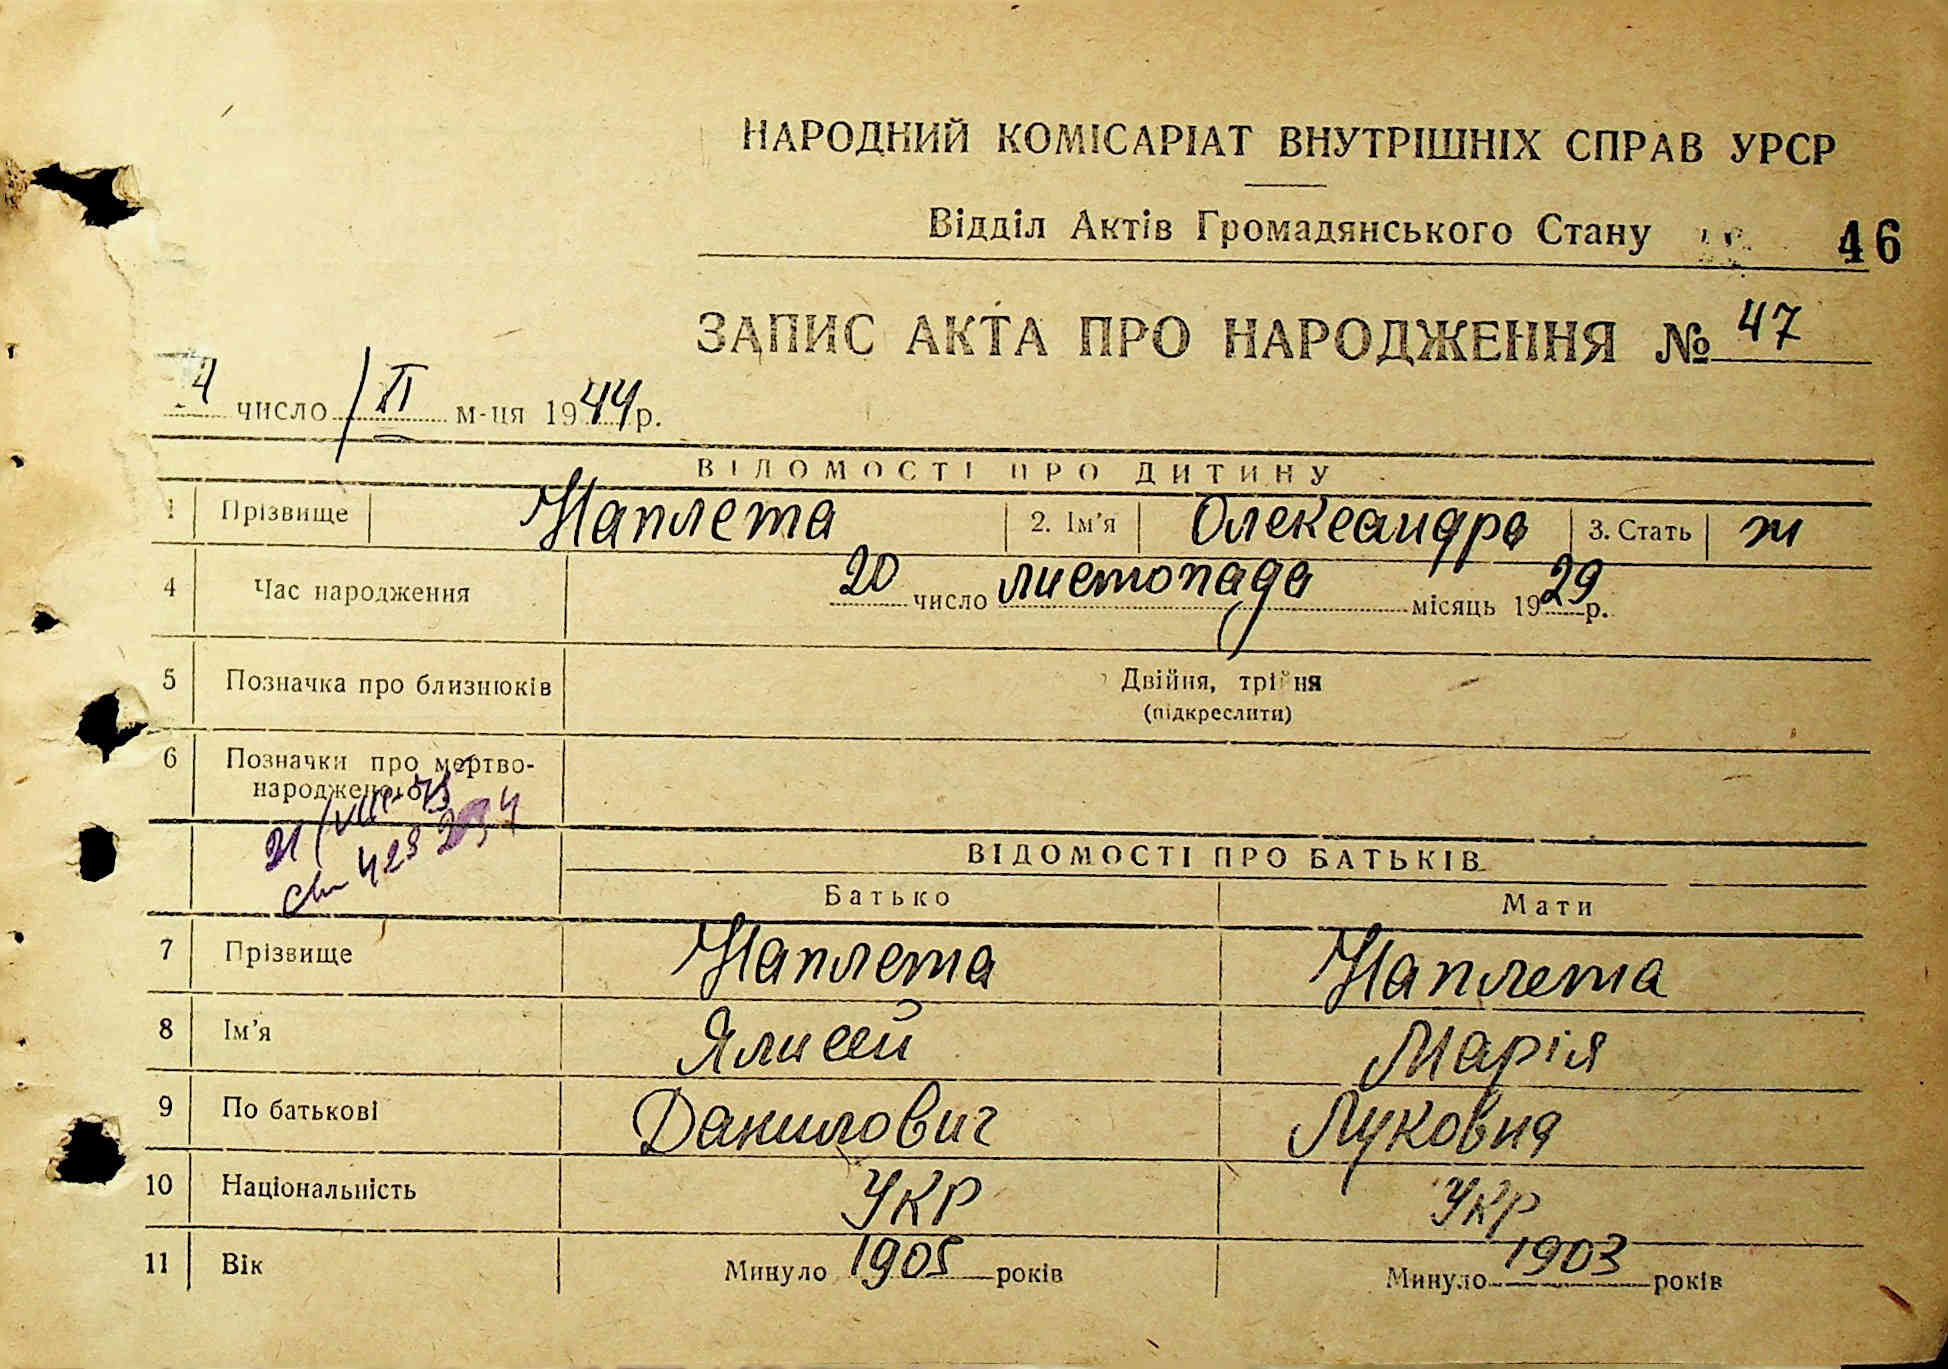 НАРОДНИЙ КОМІСАРІАТ ВНУТРІШНІХ СПРАВ УРСР
Відділ Актів Громадянського Стану 46
ЗАПИС АКТА ПРО НАРОДЖЕННЯ № 47
4 число VI м-ця 1944 р.
ВІДОМОСТІ ПРО ДИТИНУ
1 Прізвище Наплета 2. Ім'я Олександра 3. Стать ж
4 Час народження 20 число листопада місяць 1929 р.
5 Позначка про близнюків Двійня, трійня
(підкреслити)
6 Позначки про мертво-
народженого
21/VIII-75
ВІДОМОСТІ ПРО БАТЬКІВ
Батько Мати
7 Прізвище Наплета Наплета
8 Ім'я Ялисей Марія
9 По батькові Данилович Луковна
10 Національність УКР УКР
11 Вік Минуло 1905 років Минуло 1903 років